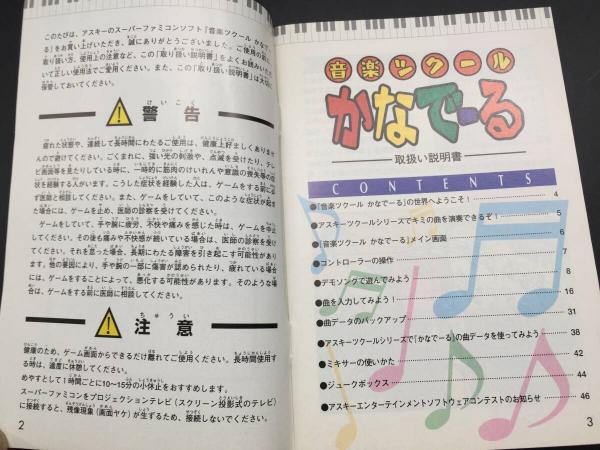 このたびは、アスキーのスーパーファミコンソフト『音楽ツクール かなで～
る』をお買い上げいただき、誠にありがとうございました。ご使用の前に、
取り扱い方、使用上の注意など、この「取り扱い説明書」をよくお読みいただ
いて正しい使用法でご愛用ください。また、この「取り扱い説明書」は大切に
保管しておいてください。
警告
疲れた状態や、連続して長時間にわたるご使用は、健康上好ましくありませ
んので避けてください。ごくまれに、強い光の刺激や、点滅を受けたり、テレ
ビ画面等を見たりしている時に、一時的に筋肉のけいれんや意識の喪失等の症
状を経験する人がいます。こうした症状を経験した人は、ゲームをする前に必
ず医師と相談してください。また、ゲームをしていて、このような症状が起き
た場合には、ゲームを止め、医師の診察を受けてください。
ゲームをしていて、手や腕に疲労、不快や痛みを感じた時は、ゲームを中止
してください。その後も痛みや不快感が続いている場合は、医師の診察を受け
てください。それを怠った場合、長期にわたる障害を引き起こす可能性があり
ます。他の要因により、手や腕の一部に傷害が認められたり、疲れている場合
には、ゲームをすることによって、悪化する可能性があります。そのような場
合は、ゲームをする前に医師に相談してください。
注意
健康のため、ゲーム画面からできるだけ離れてご使用ください。長時間使用す
る時は、適度に休憩してください。
めやすとして1時間ごとに10～15分の小休止をおすすめします。
スーパーファミコンをプロジェクションテレビ(スクリーン投影式のテレビ)
に接続すると、残像現象(画面ヤケ)が生ずるため、接続しないでください。
2
音楽ツクール
かなで～る
取扱い説明書
CONTENTS
●『音楽ツクール かなで～る』の世界へようこそ! 4
●アスキーツクールシリーズでキミの曲を演奏できるぞ! 5
●『音楽ツクール かなで～る』メイン画面 6
●コントローラーの操作 7
●デモソングで遊んでみよう 8
●曲を入力してみよう! 16
●曲データのバックアップ 31
●アスキーツクールシリーズで「かなで～る」の曲データを使ってみよう 38
●ミキサーの使いかた 42
●ジュークボックス 44
●アスキーエンターテインメントソフトウェアコンテストのお知らせ 46
3